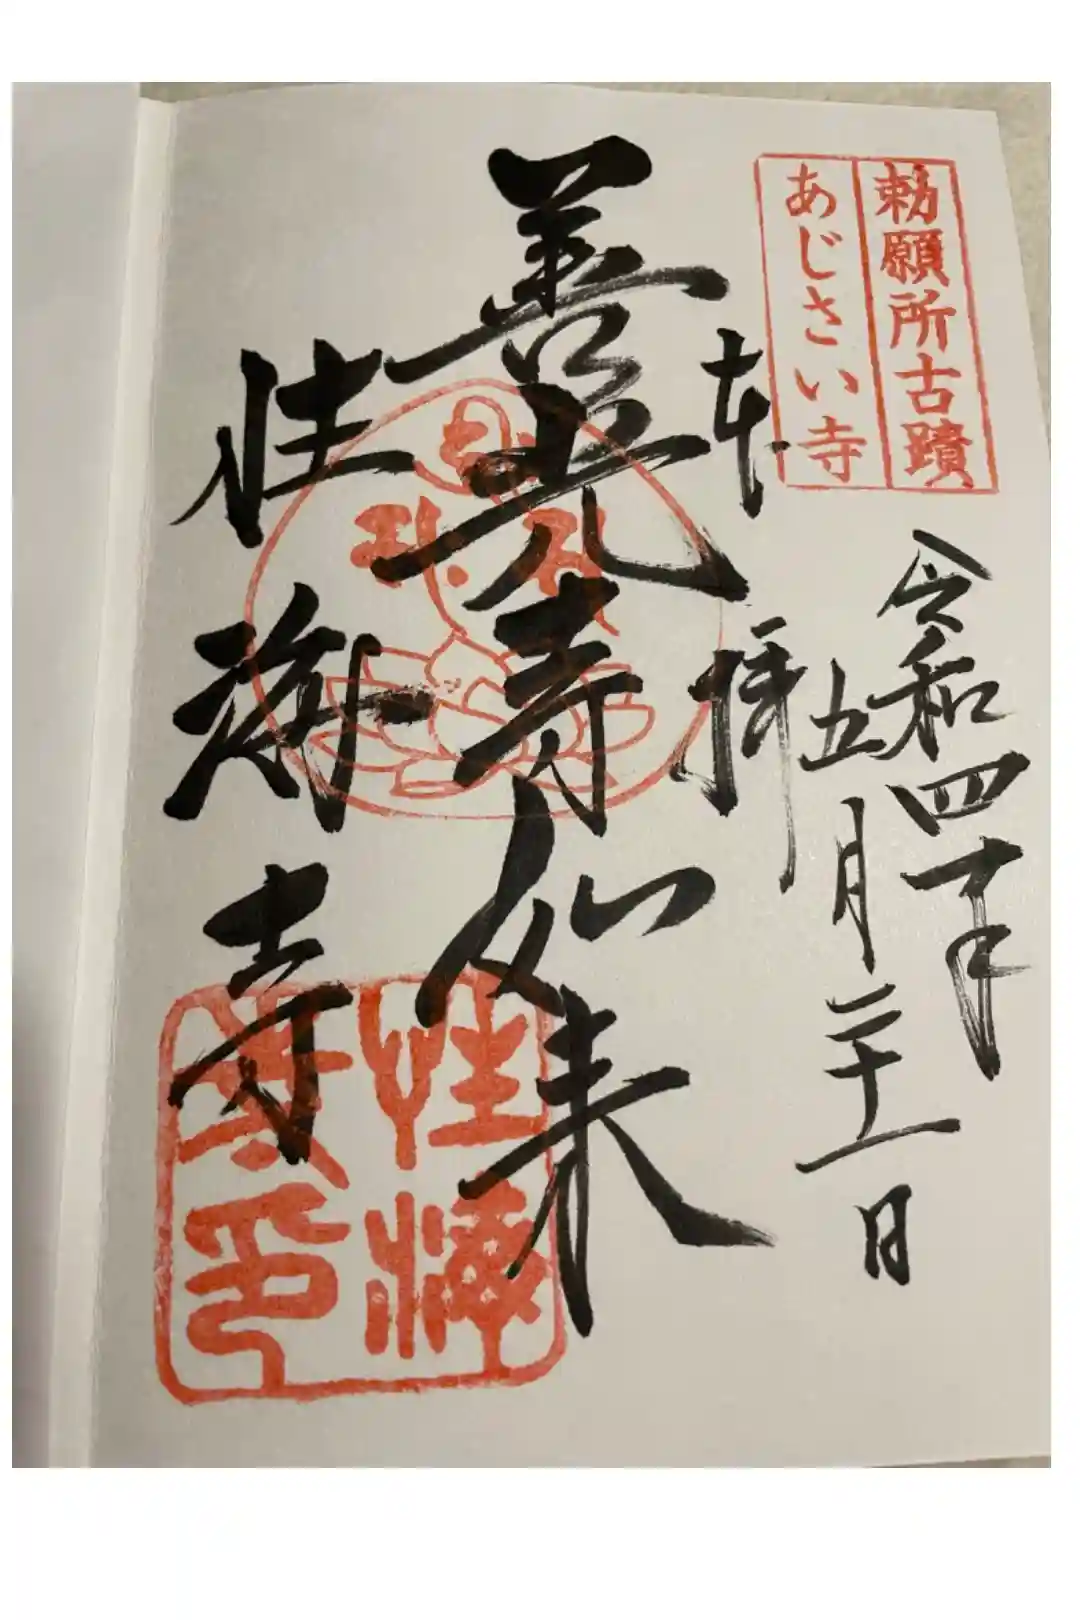 勅願所古蹟
あじさい寺
令和四年
五月二十一日
奉拝
善光寺如来
性海寺
性海
寺印